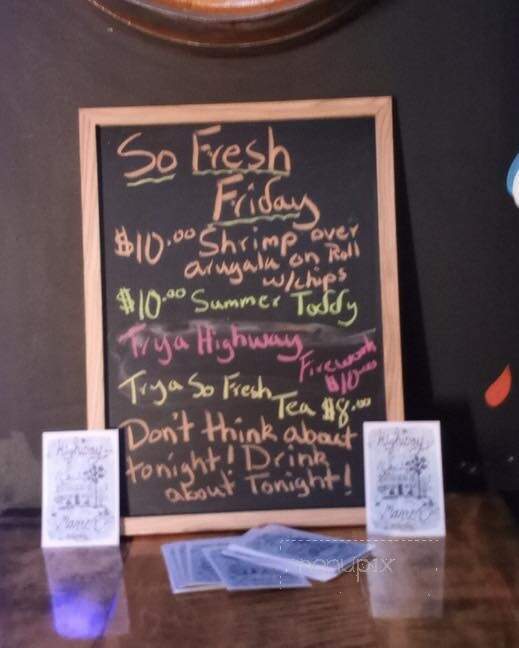 So Fresh
Friday
$10.00 Shrimp over
arugala on Roll
w/chips
$10.00 Summer Toddy
Try a Highway
Firework
$10.00
Try a So Fresh
Tea $8.00
Don't think about
tonight! Drink
about Tonight!
Highway
Manor
Highway
Manor
menupix